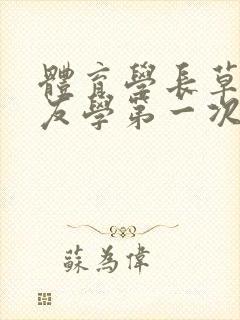 體育學長草
友學第一次
蘇為偉